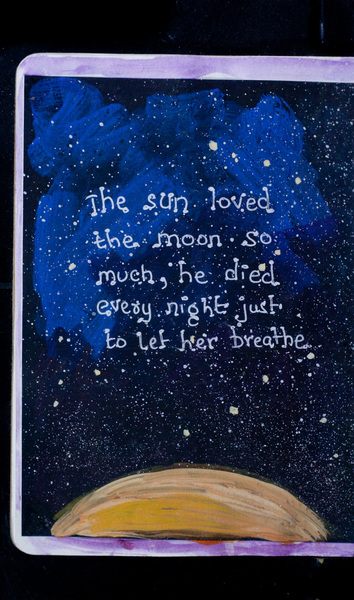 The sun loved
the moon so
much, he died
every night just
to let her breathe